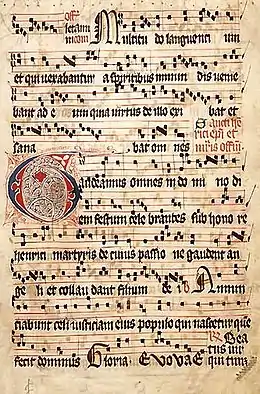 Multitu do languenti um
et qui vexabantur a spiritibus inmun dis venie
bant ad e um quia virtus de illo exi bat et
sana bat om nes
Gaudeamus omnes in do mi no di
em festum cele brantes sub hono re
henrici martyris de cuius passio ne gaudent an
ge li et collau dant filium de i Annun
ciabunt celi iusticiam eius populo qui nascetur que
Bea
tus vir
fecit dominus Gloria. EVOVAE qui tim